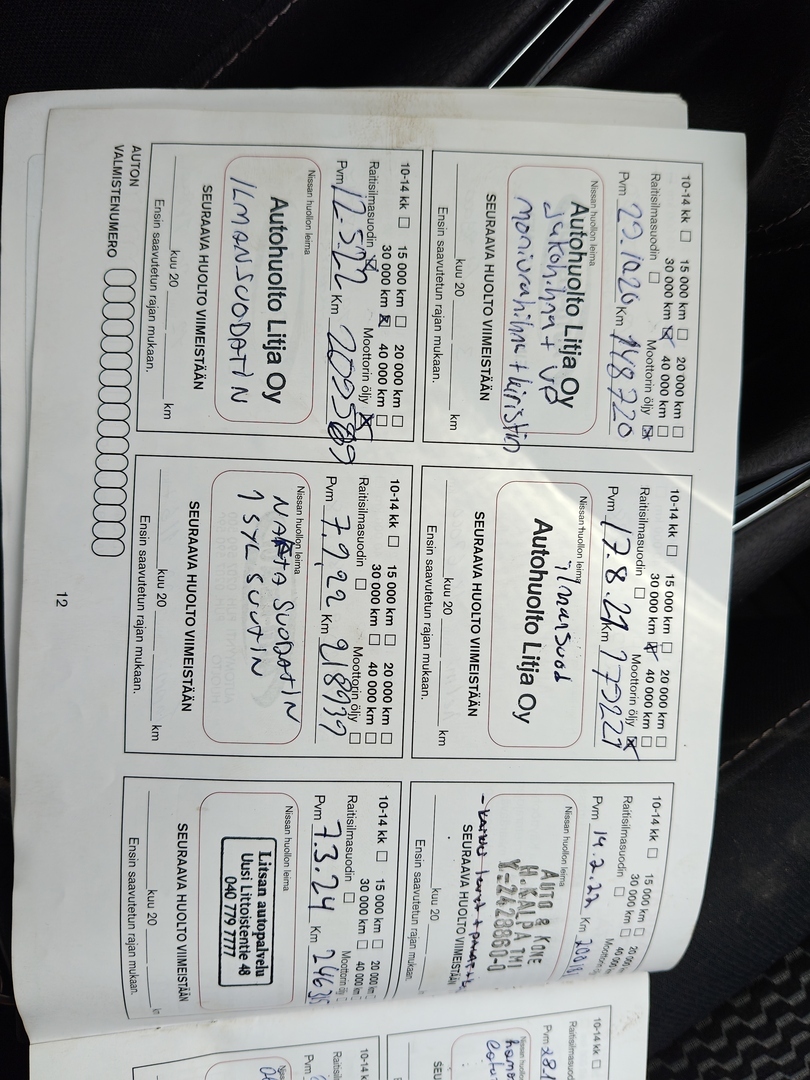 10-14 kk 15 000 km 20 000 km
30 000 km 40 000 km
Raitisilmasuodin Moottorin öljy
Pvm 29.10.20 Km 148720
Nissan huollon leima
Autohuolto Litja Oy
jakohihna + VP
moniurahihna + kiristin
SEURAAVA HUOLTO VIIMEISTÄÄN
kuu 20 km
Ensin saavutetun rajan mukaan.
10-14 kk 15 000 km 20 000 km
30 000 km 40 000 km
Raitisilmasuodin Moottorin öljy
Pvm 17.8.21 Km
Nissan huollon leima
ilmansuod
Autohuolto Litja Oy
SEURAAVA HUOLTO VIIMEISTÄÄN
kuu 20 km
Ensin saavutetun rajan mukaan.
10-14 kk 15 000 km 20
30 000 km 40 00
Raitisilmasuodin Moottorin
Pvm 14.2.22 Km
Nissan huollon leima
AUTO & KONE
H.KALPA TMI
Y-2428860-0
SEURAAVA HUOLTO VIIMEISTÄÄN
kuu 20
Ensin saavutetun rajan mukaan.
10-14 kk 15 000 km 20 000 km
30 000 km 40 000 km
Raitisilmasuodin Moottorin öljy
Pvm 12.5.22 Km
Nissan huollon leima
Autohuolto Litja Oy
ILMANSUODATIN
SEURAAVA HUOLTO VIIMEISTÄÄN
kuu 20 km
Ensin saavutetun rajan mukaan.
10-14 kk 15 000 km 20 000 km
30 000 km 40 000 km
Raitisilmasuodin Moottorin öljy
Pvm 7.9.22 Km 218939
Nissan huollon leima
NAFTA SUODATIN
1 SYL SUUTIN
SEURAAVA HUOLTO VIIMEISTÄÄN
kuu 20 km
Ensin saavutetun rajan mukaan.
10-14 kk 15 000 km 20 000 km
30 000 km 40 000 km
Raitisilmasuodin Moottorin öljy
Pvm 7.3.24 Km
Nissan huollon leima
Litsan autopalvelu
Uusi Littoistentie 48
040 779 7777
SEURAAVA HUOLTO VIIMEISTÄÄN
kuu 20
Ensin saavutetun rajan mukaan.
AUTON
VALMISTENUMERO
12
10-14 kk
Raitisilmasuod
Pvm
Nissan huollon leima
SEU
10-14 k
Raitisil
Pvm